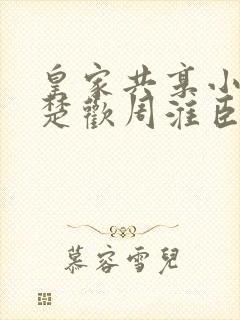 皇家共享小
楚歡周淮臣
慕容雪兒